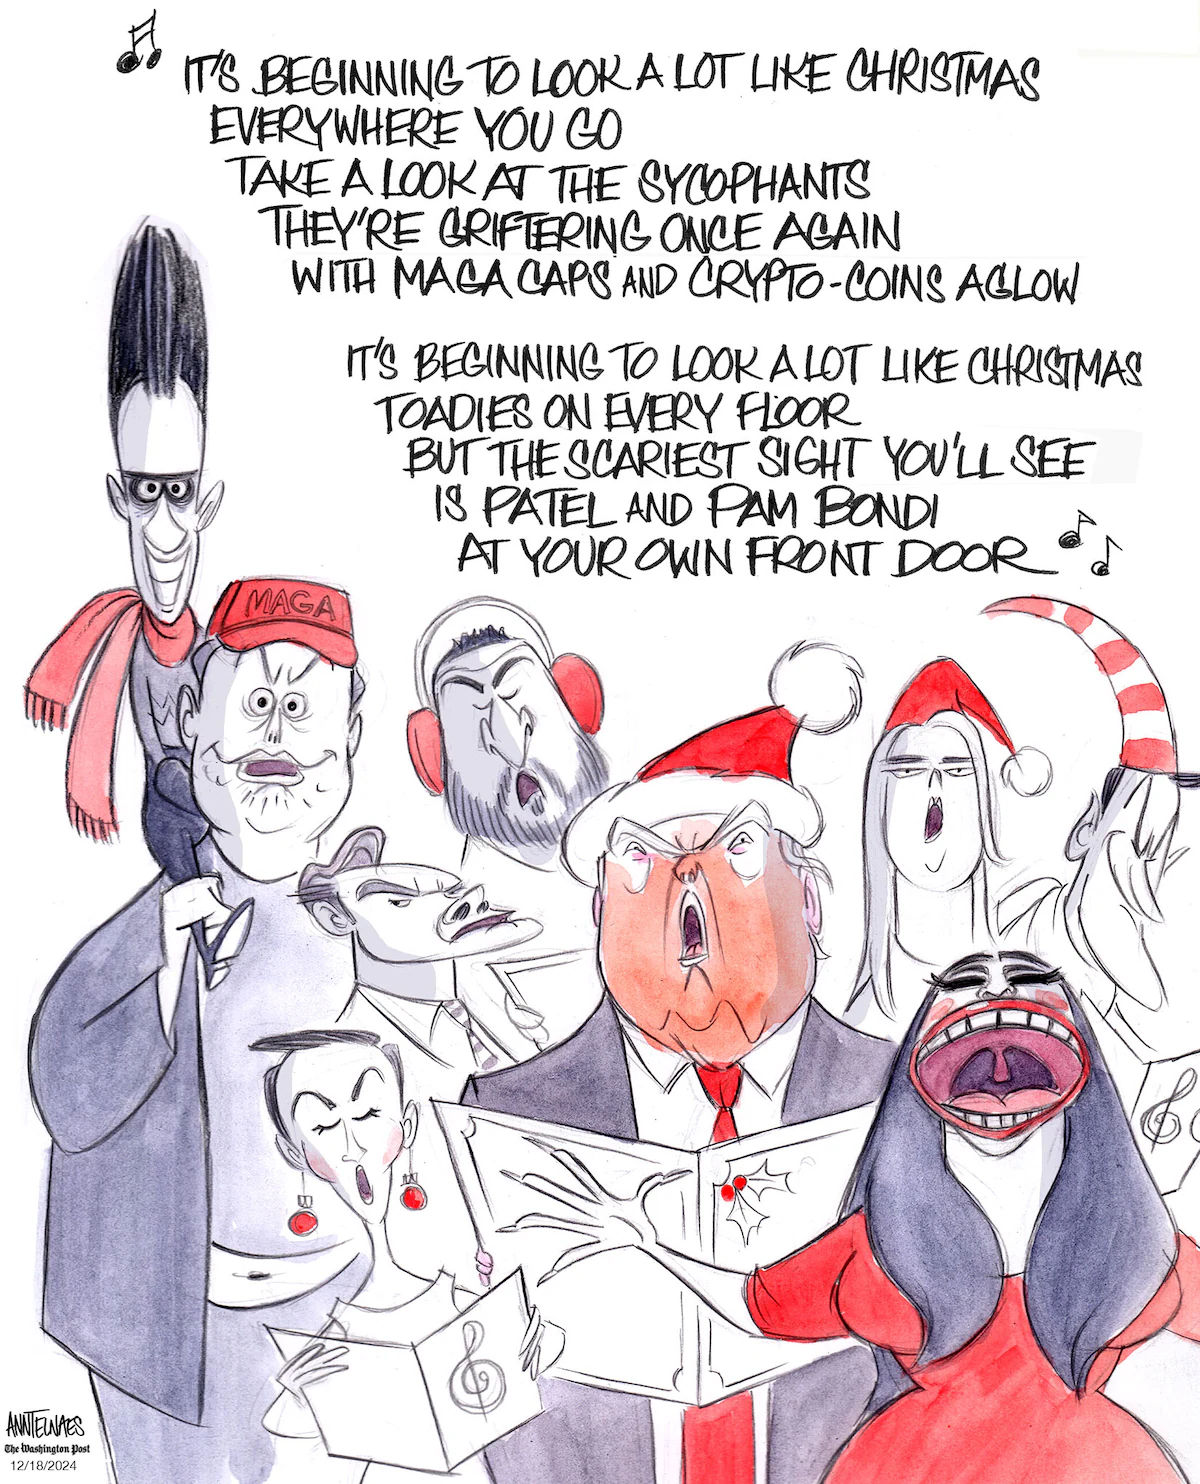 IT'S BEGINNING TO LOOK A LOT LIKE CHRISTMAS
EVERYWHERE YOU GO
TAKE A LOOK AT THE SYCOPHANTS
THEY'RE GRIFTERING ONCE AGAIN
WITH MAGA CAPS AND CRYPTO-COINS AGLOW
IT'S BEGINNING TO LOOK A LOT LIKE CHRISTMAS
TOADIES ON EVERY FLOOR
BUT THE SCARIEST SIGHT YOU'LL SEE
IS PATEL AND PAM BONDI
AT YOUR OWN FRONT DOOR
MAGA
ANNTELNAES
The Washington Post
12/18/2024